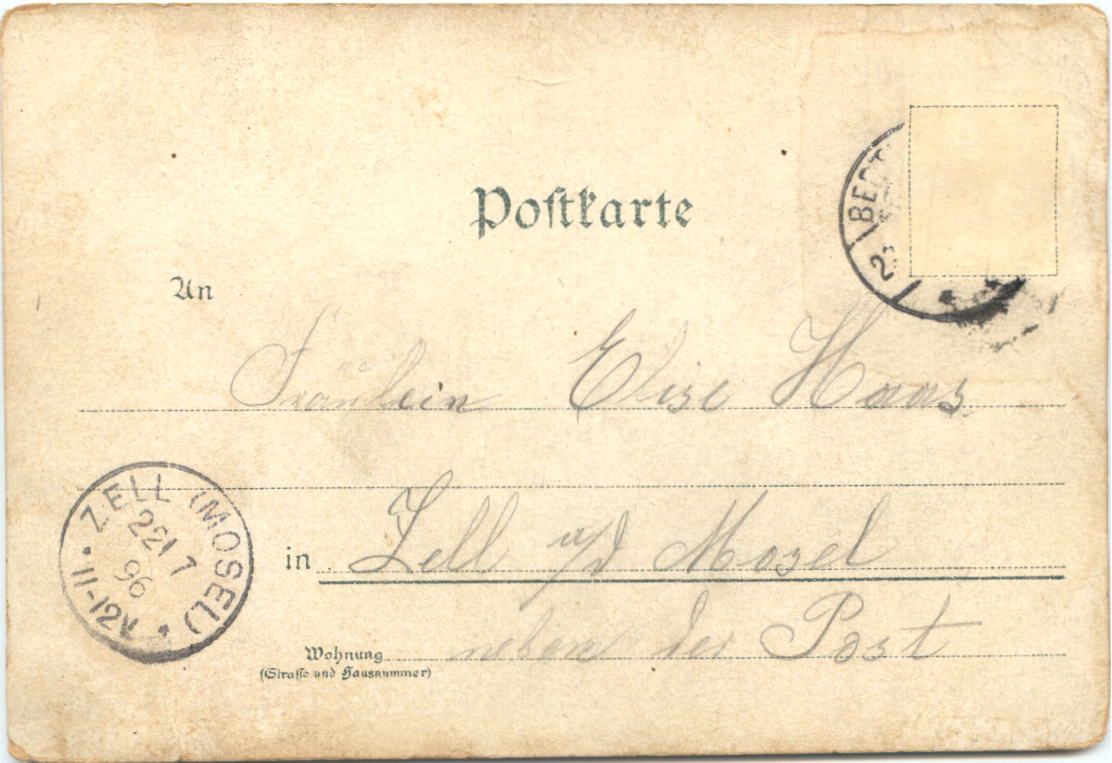 Postkarte
An
Fräulein Elise Haas
ZELL (MOSEL)
22/7
96
11-12V
in Zell a/d Mosel
Wohnung
neben der Post
(Straße und Hausnummer)